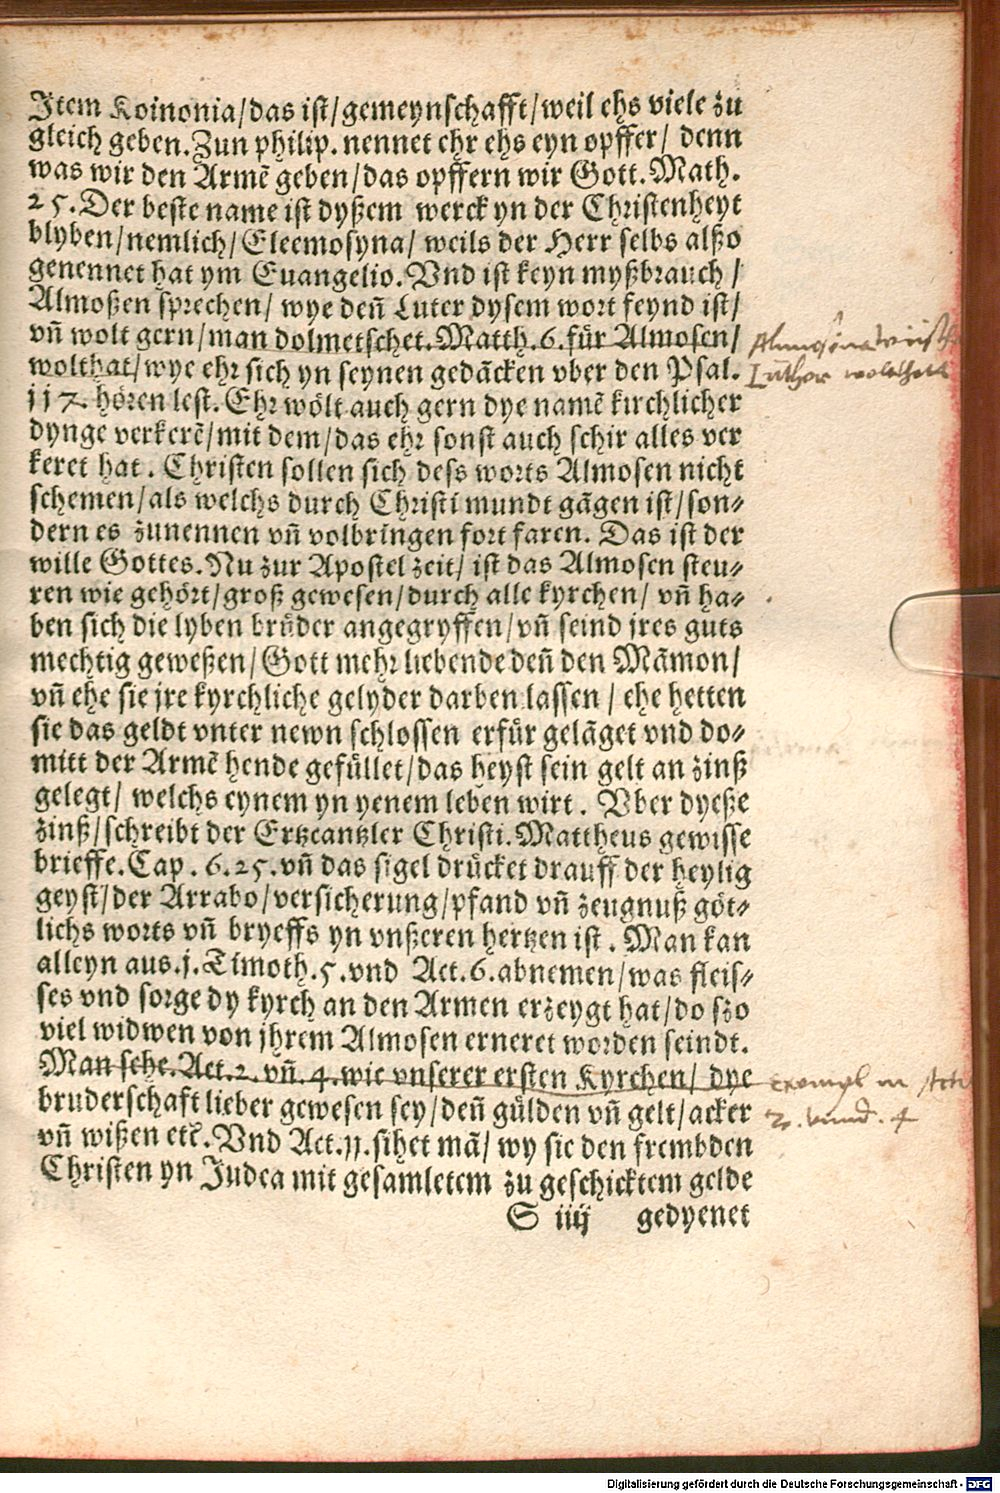 Item Koinonia/das ist/gemeynschafft/weil ehs viele zu
gleich geben. Zun philip. nennet ehr ehs eyn opffer/ denn
was wir den Armē geben/das opffern wir Gott. Math.
25. Der beste name ist dyßem werck yn der Christenheyt
blyben/nemlich/Eleemosyna/ weils der Herr selbs alßo
genennet hat ym Euangelio. Vnd ist keyn myßbrauch/
Almoßen sprechen/ wye deñ Luter dysem wort feynd ist/
vñ wolt gern/man dolmetschet. Matth. 6. für Almosen/
wolthat/wye ehr sich yn seynen gedācken vber den Psal.
117. hören lest. Ehr wölt auch gern dye namē kirchlicher
dynge verkerē/mit dem/das ehr sonst auch schir alles ver
keret hat. Christen sollen sich dess worts Almosen nicht
schemen/als welchs durch Christi mundt gāgen ist/son⸗
dern es zunennen vñ volbringen fort faren. Das ist der
wille Gottes. Nu zur Apostel zeit/ ist das Almosen steu⸗
ren wie gehört/groß gewesen/durch alle kyrchen/ vñ ha⸗
ben sich die lyben brüder angegryffen/vñ seind jres guts
mechtig geweßen/Gott mehr liebende deñ den Māmon/
vñ ehe sie jre kyrchliche gelyder darben lassen/ ehe hetten
sie das geldt vnter newn schlossen erfür gelāget vnd do⸗
mitt der Armē hende gefüllet/das heyst sein gelt an zinß
gelegt/ welchs eynem yn yenem leben wirt. Vber dyeße
zinß/schreibt der Ertzcantzler Christi. Mattheus gewisse
brieffe. Cap. 6. 25. vñ das sigel drücket drauff der heylig
geyst/der Arrabo/versicherung/pfand vñ zeugnuß göt⸗
lichs worts vñ bryeffs yn vnßeren hertzen ist. Man kan
alleyn aus. j. Timoth. 5. vnd Act. 6. abnemen/was fleis⸗
ses vnd sorge dy kyrch an den Armen erzeygt hat/do szo
viel widwen von jhrem Almosen erneret worden seindt.
Man sehe. Act. 2. vñ. 4. wie vnserer ersten Kyrchen/ dye
bruderschaft lieber gewesen sey/deñ gülden vñ gelt/acker
vñ wißen etc̄. Vnd Act. 11. sihet mā/ wy sie den frembden
Christen yn Judea mit gesamletem zu geschicktem gelde
S iiij gedyenet
Luther wolthatt
exempl in Acti
2. vnnd. 4
Digitalisierung gefördert durch die Deutsche Forschungsgemeinschaft - DFG